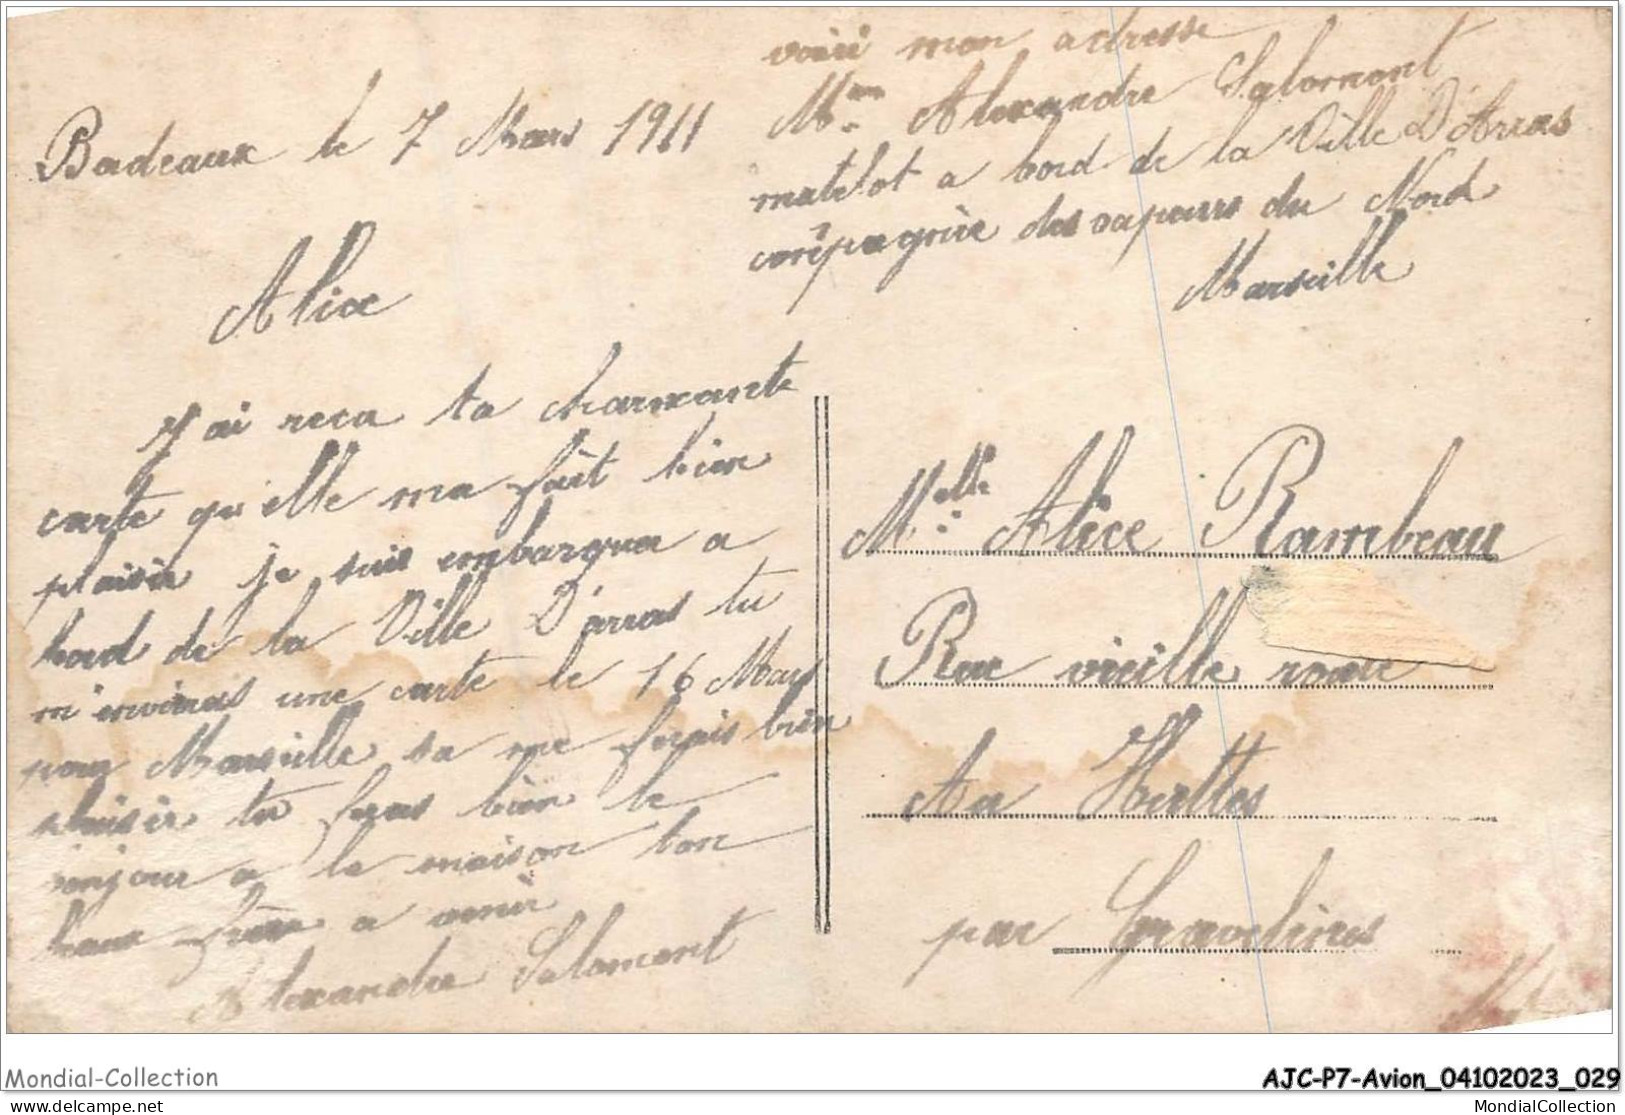 Bordeaux le 7 Mars 1911
voici mon adresse
Mr Alexandre Salomont
matelot a bord de la Ville D'Arras
compagnie des vapeurs du Nord
Marseille
Alice
J'ai reca ta charmante
carte qu'elle ma fait bien
plaisir je suis embarquer a
bord de la Ville D'arras tu
m'enviras une carte le 16 Mars
pour Marseille sa me ferais bien
plaisir tu feras bien le
bonjour a la maison ton
beaux frère a venir
Alexandre Salomont
Melle Alice Rambeau
Rue vieille route
Au Huttes
par Gravelines
Mondial-Collection
AJC-P7-Avion_04102023_029
www.delcampe.net
MondialCollection